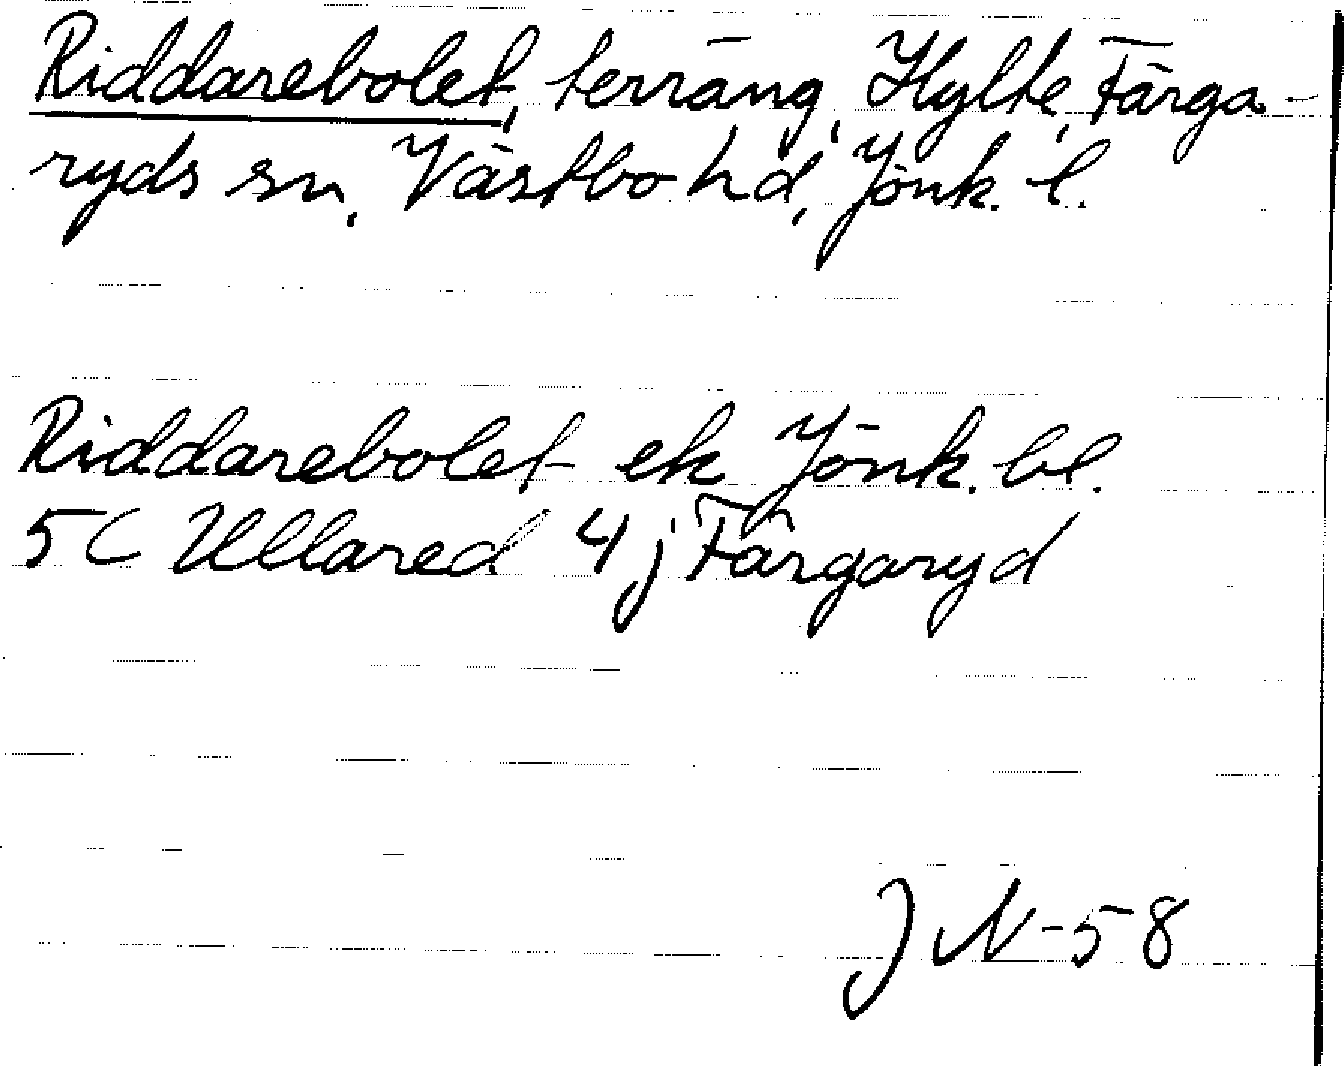 Riddarebolet, terräng, Hylte, Färga-
ryds sn, Västbo hd, Jönk. l.
Riddarebolet ek Jönk. bl.
5C Ullared 4 j Färgaryd
JN-58